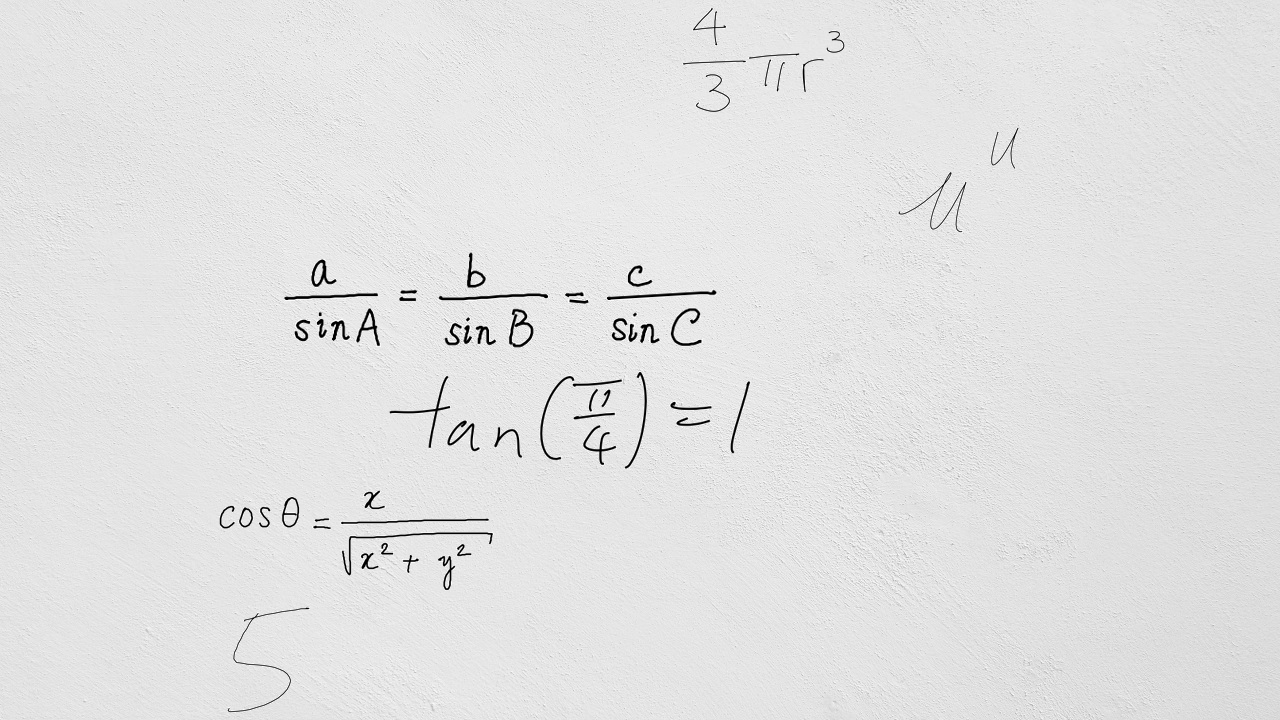 \frac{4}{3}\pi r^{3}
\mu^{u}
\frac{a}{\sin A} = \frac{b}{\sin B} = \frac{c}{\sin C}
\tan\left(\frac{\pi}{4}\right) = 1
\cos\theta = \frac{x}{\sqrt{x^{2} + y^{2}}}
5